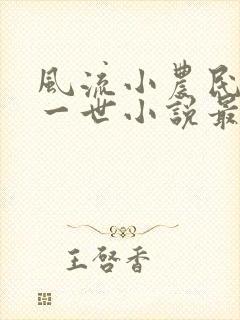 風流小農民
一世小説最
王啓香